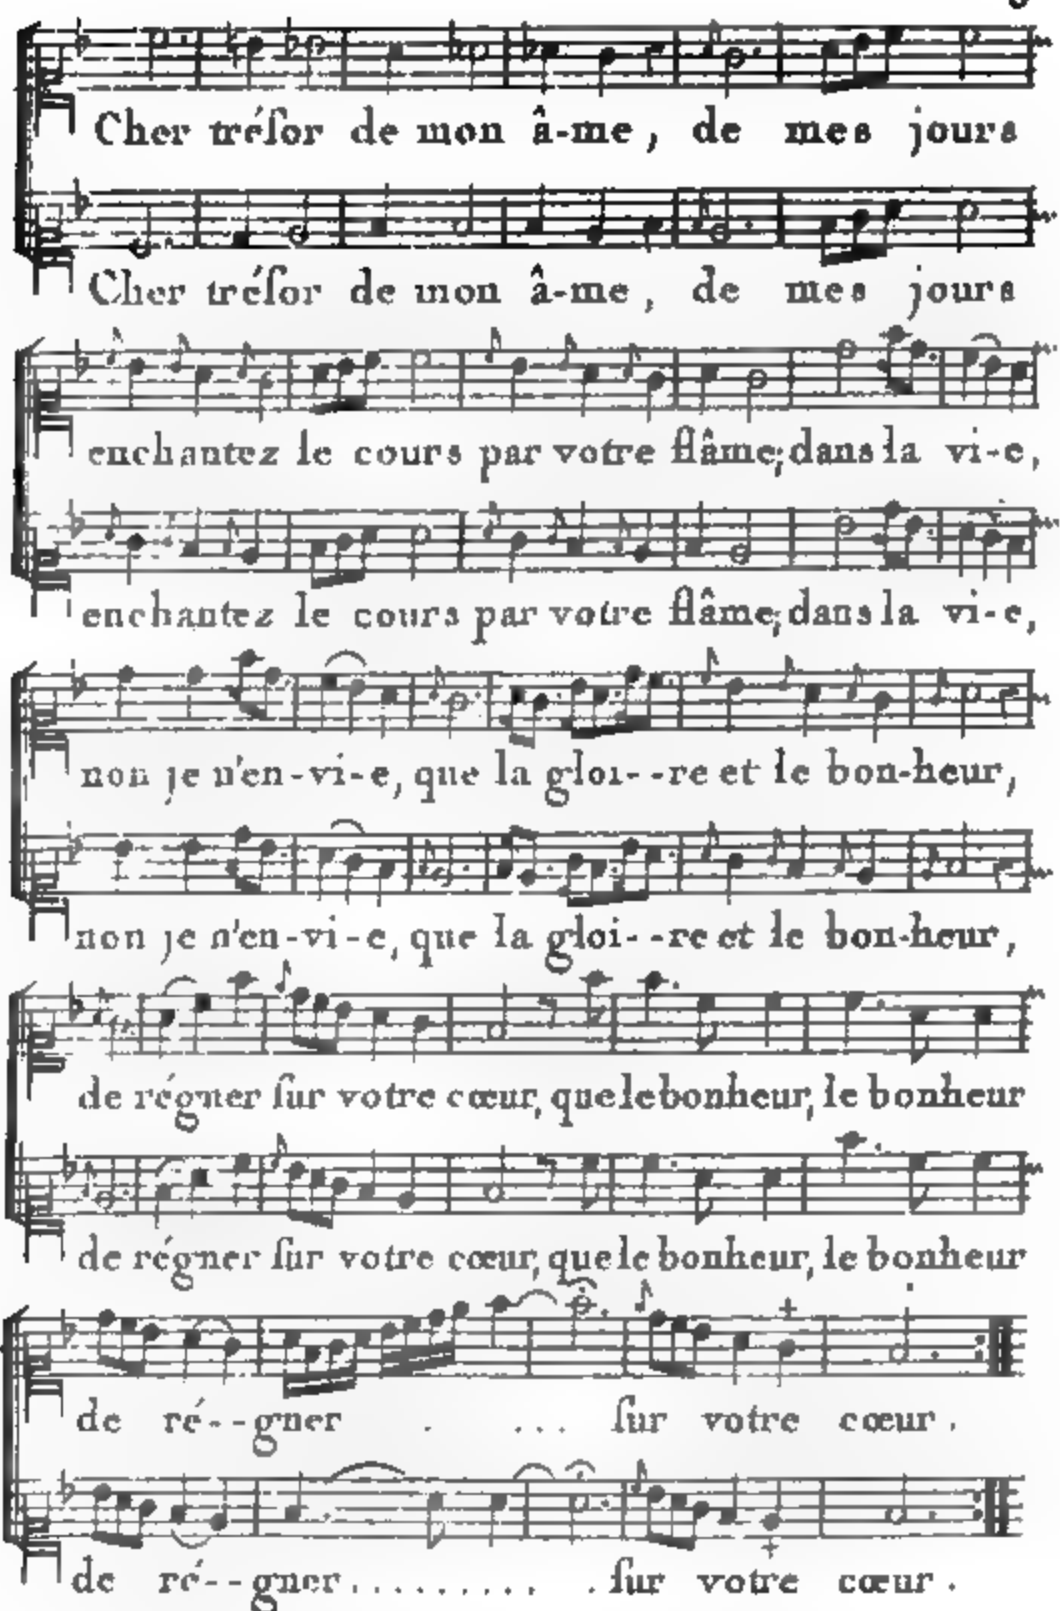 Cher tréſor de mon â-me, de mes jours
Cher tréſor de mon â-me, de mes jours
enchantez le cours par votre flâme; dans la vi-e,
enchantez le cours par votre flâme; dans la vi-e,
non je n'en-vi-e, que la gloi--re et le bon-heur,
non je n'en-vi-e, que la gloi--re et le bon-heur,
de régner ſur votre cœur, que le bonheur, le bonheur
de régner ſur votre cœur, que le bonheur, le bonheur
de ré--gner . ... ſur votre cœur.
de ré--gner.......... .ſur votre cœur.